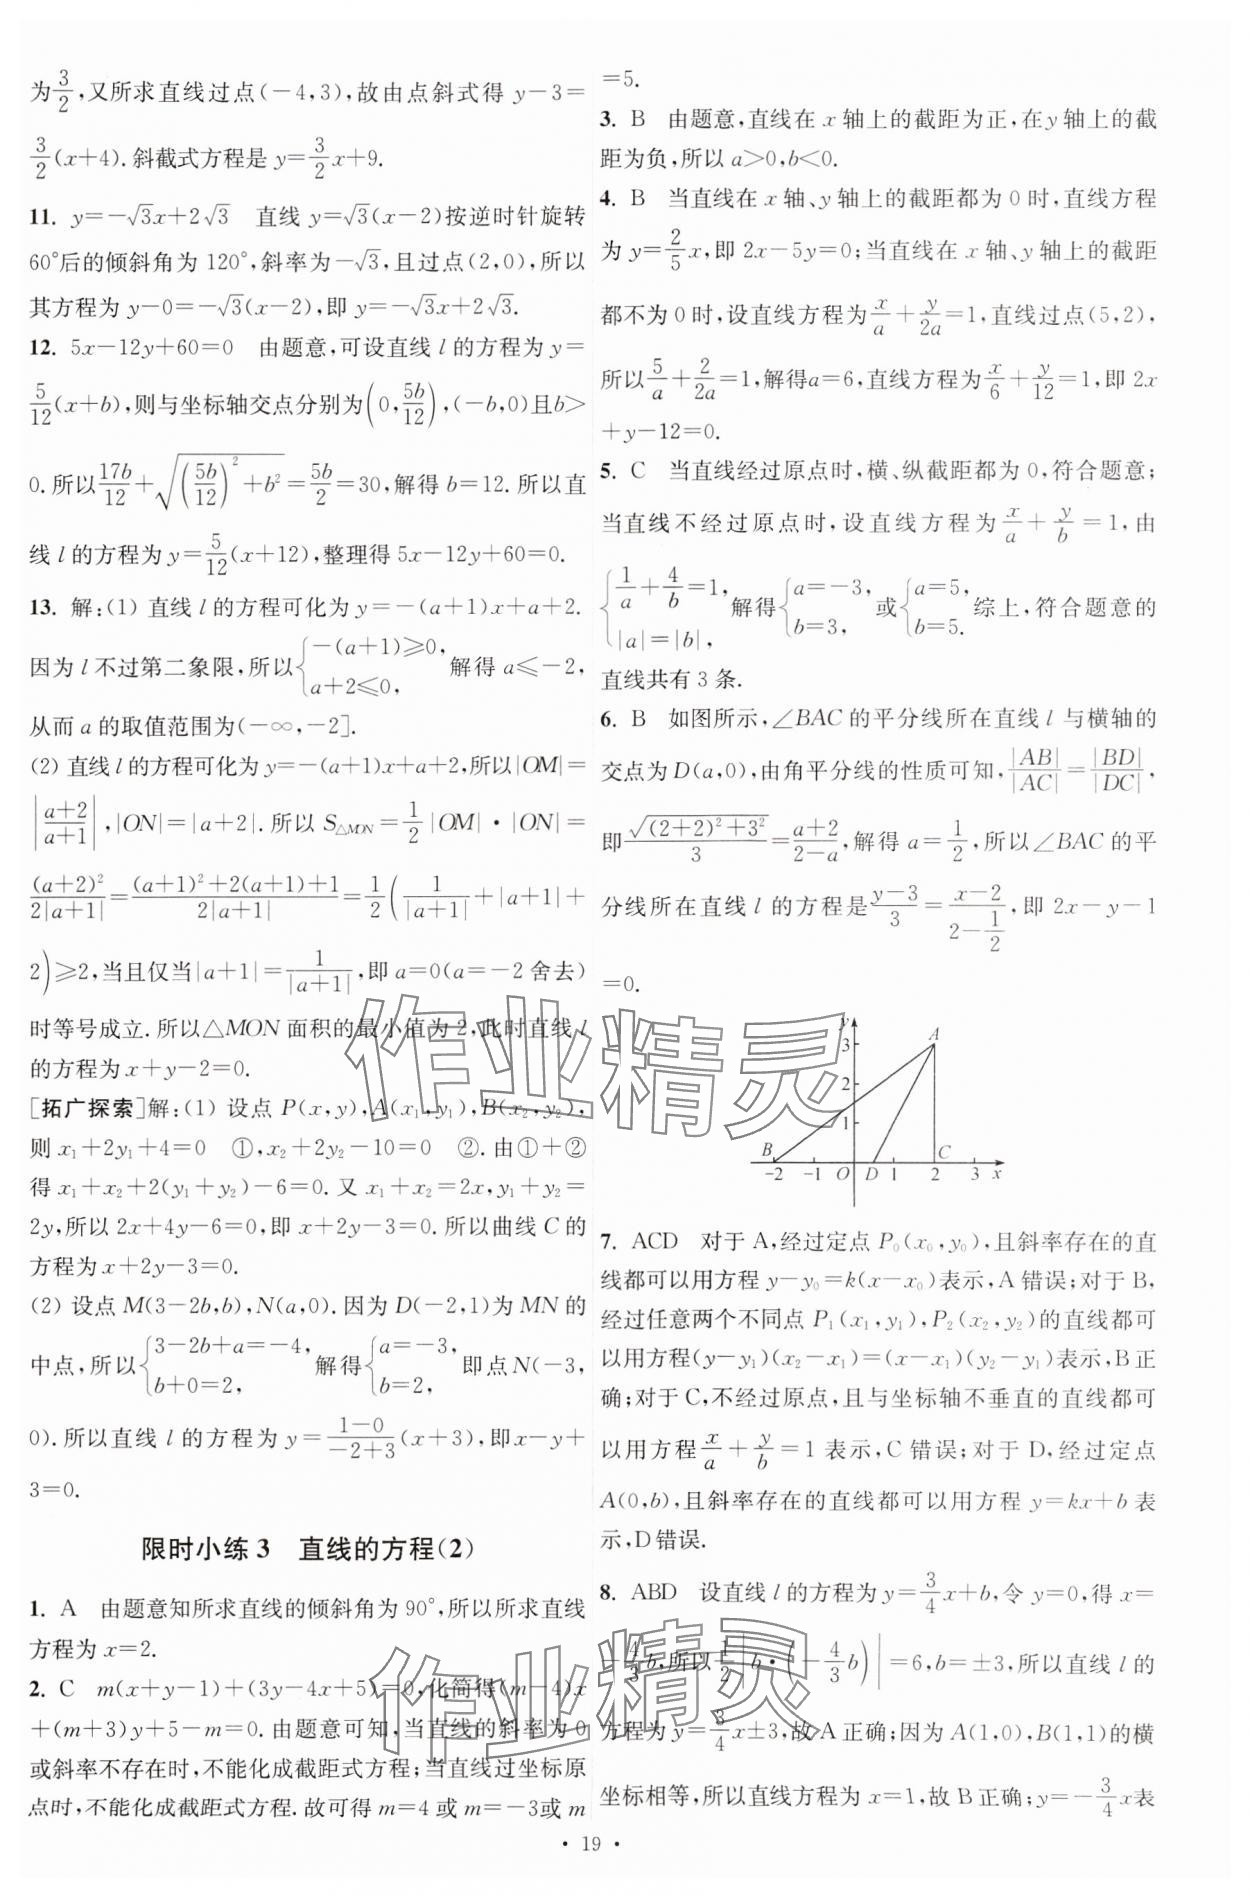 为3/2,又所求直线过点(-4,3),故由点斜式得 y-3=
3/2(x+4).斜截式方程是 y=3/2x+9.
11. y=-√3x+2√3 直线 y=√3(x-2)按逆时针旋转
60°后的倾斜角为 120°,斜率为-√3,且过点(2,0),所以
其方程为 y-0=-√3(x-2),即 y=-√3x+2√3.
12. 5x-12y+60=0 由题意,可设直线 l 的方程为 y=
5/12(x+b),则与坐标轴交点分别为(0,5b/12),(-b,0)且b>
0.所以17b/12+√((5b/12)²+b²)=5b/2=30,解得 b=12.所以直
线 l 的方程为 y=5/12(x+12),整理得 5x-12y+60=0.
13. 解:(1) 直线 l 的方程可化为 y=-(a+1)x+a+2.
因为 l 不过第二象限,所以{-(a+1)≥0, a+2≤0, 解得 a≤-2,
从而 a 的取值范围为(-∞,-2].
(2) 直线 l 的方程可化为 y=-(a+1)x+a+2,所以|OM|=
|(a+2)/(a+1)|,|ON|=|a+2|.所以 S△MON=1/2|OM|·|ON|=
(a+2)²/(2|a+1|)=((a+1)²+2(a+1)+1)/(2|a+1|)=1/2(1/|a+1|+|a+1|+
2)≥2,当且仅当|a+1|=1/|a+1|,即 a=0(a=-2 舍去)
时等号成立.所以△MON 面积的最小值为 2,此时直线 l
的方程为 x+y-2=0.
[拓广探索]解:(1) 设点 P(x,y),A(x₁,y₁),B(x₂,y₂),
则 x₁+2y₁+4=0 ①,x₂+2y₂-10=0 ②.由①+②
得 x₁+x₂+2(y₁+y₂)-6=0.又 x₁+x₂=2x,y₁+y₂=
2y,所以 2x+4y-6=0,即 x+2y-3=0.所以曲线 C 的
方程为 x+2y-3=0.
(2) 设点 M(3-2b,b),N(a,0).因为 D(-2,1)为 MN 的
中点,所以{3-2b+a=-4, b+0=2, 解得{a=-3, b=2, 即点 N(-3,
0).所以直线 l 的方程为 y=(1-0)/(-2+3)(x+3),即 x-y+
3=0.
限时小练 3 直线的方程(2)
1. A 由题意知所求直线的倾斜角为 90°,所以所求直线
方程为 x=2.
2. C m(x+y-1)+(3y-4x+5)=0,化简得(m-4)x
+(m+3)y+5-m=0.由题意可知,当直线的斜率为 0
或斜率不存在时,不能化成截距式方程;当直线过坐标原
点时,不能化成截距式方程.故可得 m=4 或 m=-3或 m
=5.
3. B 由题意,直线在 x 轴上的截距为正,在 y 轴上的截
距为负,所以 a>0,b<0.
4. B 当直线在 x 轴、y 轴上的截距都为 0 时,直线方程
为 y=2/5x,即 2x-5y=0;当直线在 x 轴、y 轴上的截距
都不为 0 时,设直线方程为x/a+y/2a=1,直线过点(5,2),
所以5/a+2/2a=1,解得a=6,直线方程为x/6+y/12=1,即 2x
+y-12=0.
5. C 当直线经过原点时,横、纵截距都为 0,符合题意;
当直线不经过原点时,设直线方程为x/a+y/b=1,由
{1/a+4/b=1, |a|=|b|, 解得{a=-3, b=3, 或{a=5, b=5. 综上,符合题意的
直线共有 3 条.
6. B 如图所示,∠BAC 的平分线所在直线 l 与横轴的
交点为 D(a,0),由角平分线的性质可知,|AB|/|AC|=|BD|/|DC|,
即√((2+2)²+3²)/3=(a+2)/(2-a),解得 a=1/2,所以∠BAC 的平
分线所在直线 l 的方程是(y-3)/3=(x-2)/(2-1/2),即 2x-y-1
=0.
y
3
A
2
1
B
C
-2 -1 O D 1 2 3 x
7. ACD 对于 A,经过定点 P₀(x₀,y₀),且斜率存在的直
线都可以用方程 y-y₀=k(x-x₀)表示,A 错误;对于 B,
经过任意两个不同点 P₁(x₁,y₁),P₂(x₂,y₂)的直线都可
以用方程(y-y₁)(x₂-x₁)=(x-x₁)(y₂-y₁)表示,B正
确;对于 C,不经过原点,且与坐标轴不垂直的直线都可
以用方程x/a+y/b=1 表示,C 错误;对于 D,经过定点
A(0,b),且斜率存在的直线都可以用方程 y=kx+b 表
示,D 错误.
8. ABD 设直线 l 的方程为 y=3/4x+b,令 y=0,得 x=
-4/3b,所以1/2|b·(-4/3b)|=6,b=±3,所以直线 l 的
方程为 y=3/4x±3,故 A 正确;因为 A(1,0),B(1,1)的横
坐标相等,所以直线方程为 x=1,故 B 正确;y=-3/4x表
作业精灵
作业精灵
· 19 ·